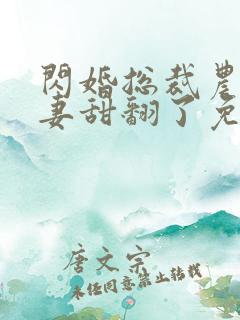 閃婚总裁農
妻甜翻了免
唐文宗
未经同意禁止转载